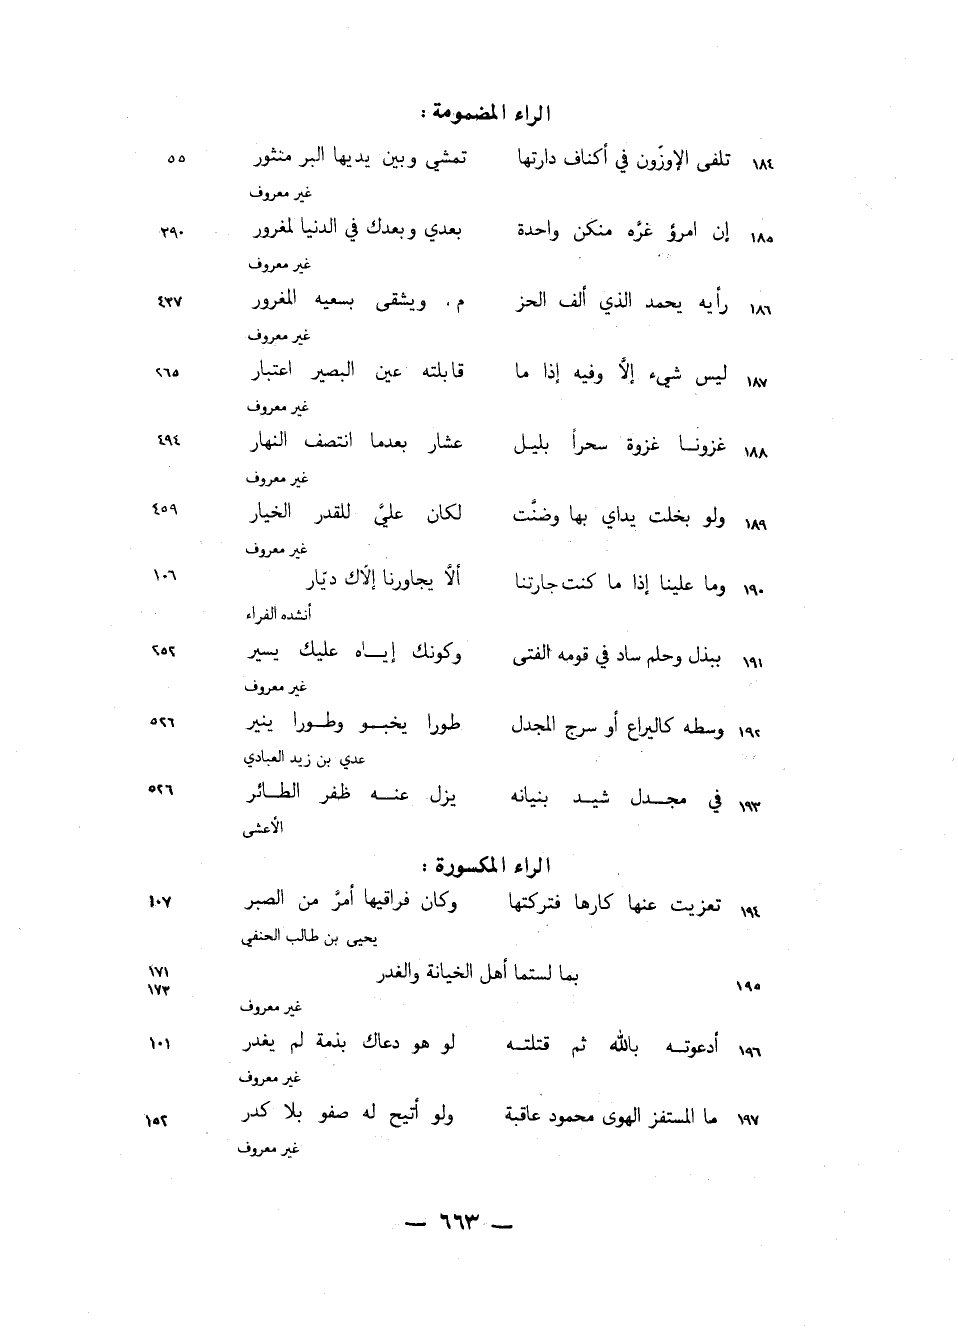 الراء المضمومة :
١٨٤ تلفى الإوزّون في أكناف دارتها تمشي وبين يديها البر منثور ٥٥
غير معروف
١٨٥ إن امرؤ غرَّه منكن واحدة بعدي وبعدك في الدنيا لمغرور ٢٩٠
غير معروف
١٨٦ رأيه يحمد الذي ألف الحز م . ويشقى بسعيه المغرور ٤٣٧
غير معروف
١٨٧ ليس شيء إلَّا وفيه إذا ما قابلته عين البصير اعتبار ٢٦٥
غير معروف
١٨٨ غزونا غزوة سحراً بليل عشار بعدما انتصف النهار ٤٩٤
غير معروف
١٨٩ ولو بخلت يداي بها وضنَّت لكان عليَّ للقدر الخيار ٤٥٩
غير معروف
١٩٠ وما علينا إذا ما كنت جارتنا ألاَّ يجاورنا إلّاك ديّار ١٠٦
أنشده الفراء
١٩١ ببذل وحلم ساد في قومه الفتى وكونك إياه عليك يسير ٢٥٢
غير معروف
١٩٢ وسطه كاليراع أو سرج المجدل طورا يخبو وطورا ينير ٥٢٦
عدي بن زيد العبادي
١٩٣ في مجدل شيد بنيانه يزل عنه ظفر الطائر ٥٢٦
الأعشى
الراء المكسورة :
١٩٤ تعزيت عنها كارها فتركتها وكان فراقيها أمرَّ من الصبر ١٠٧
يحيى بن طالب الحنفي
١٩٥ بما لستما أهل الخيانة والغدر ١٧١
١٧٣
غير معروف
١٩٦ أدعوته بالله ثم قتلته لو هو دعاك بذمة لم يغدر ١٠١
غير معروف
١٩٧ ما المستفز الهوى محمود عاقبة ولو أتيح له صفو بلا كدر ١٥٢
غير معروف
— ٦٦٣ —